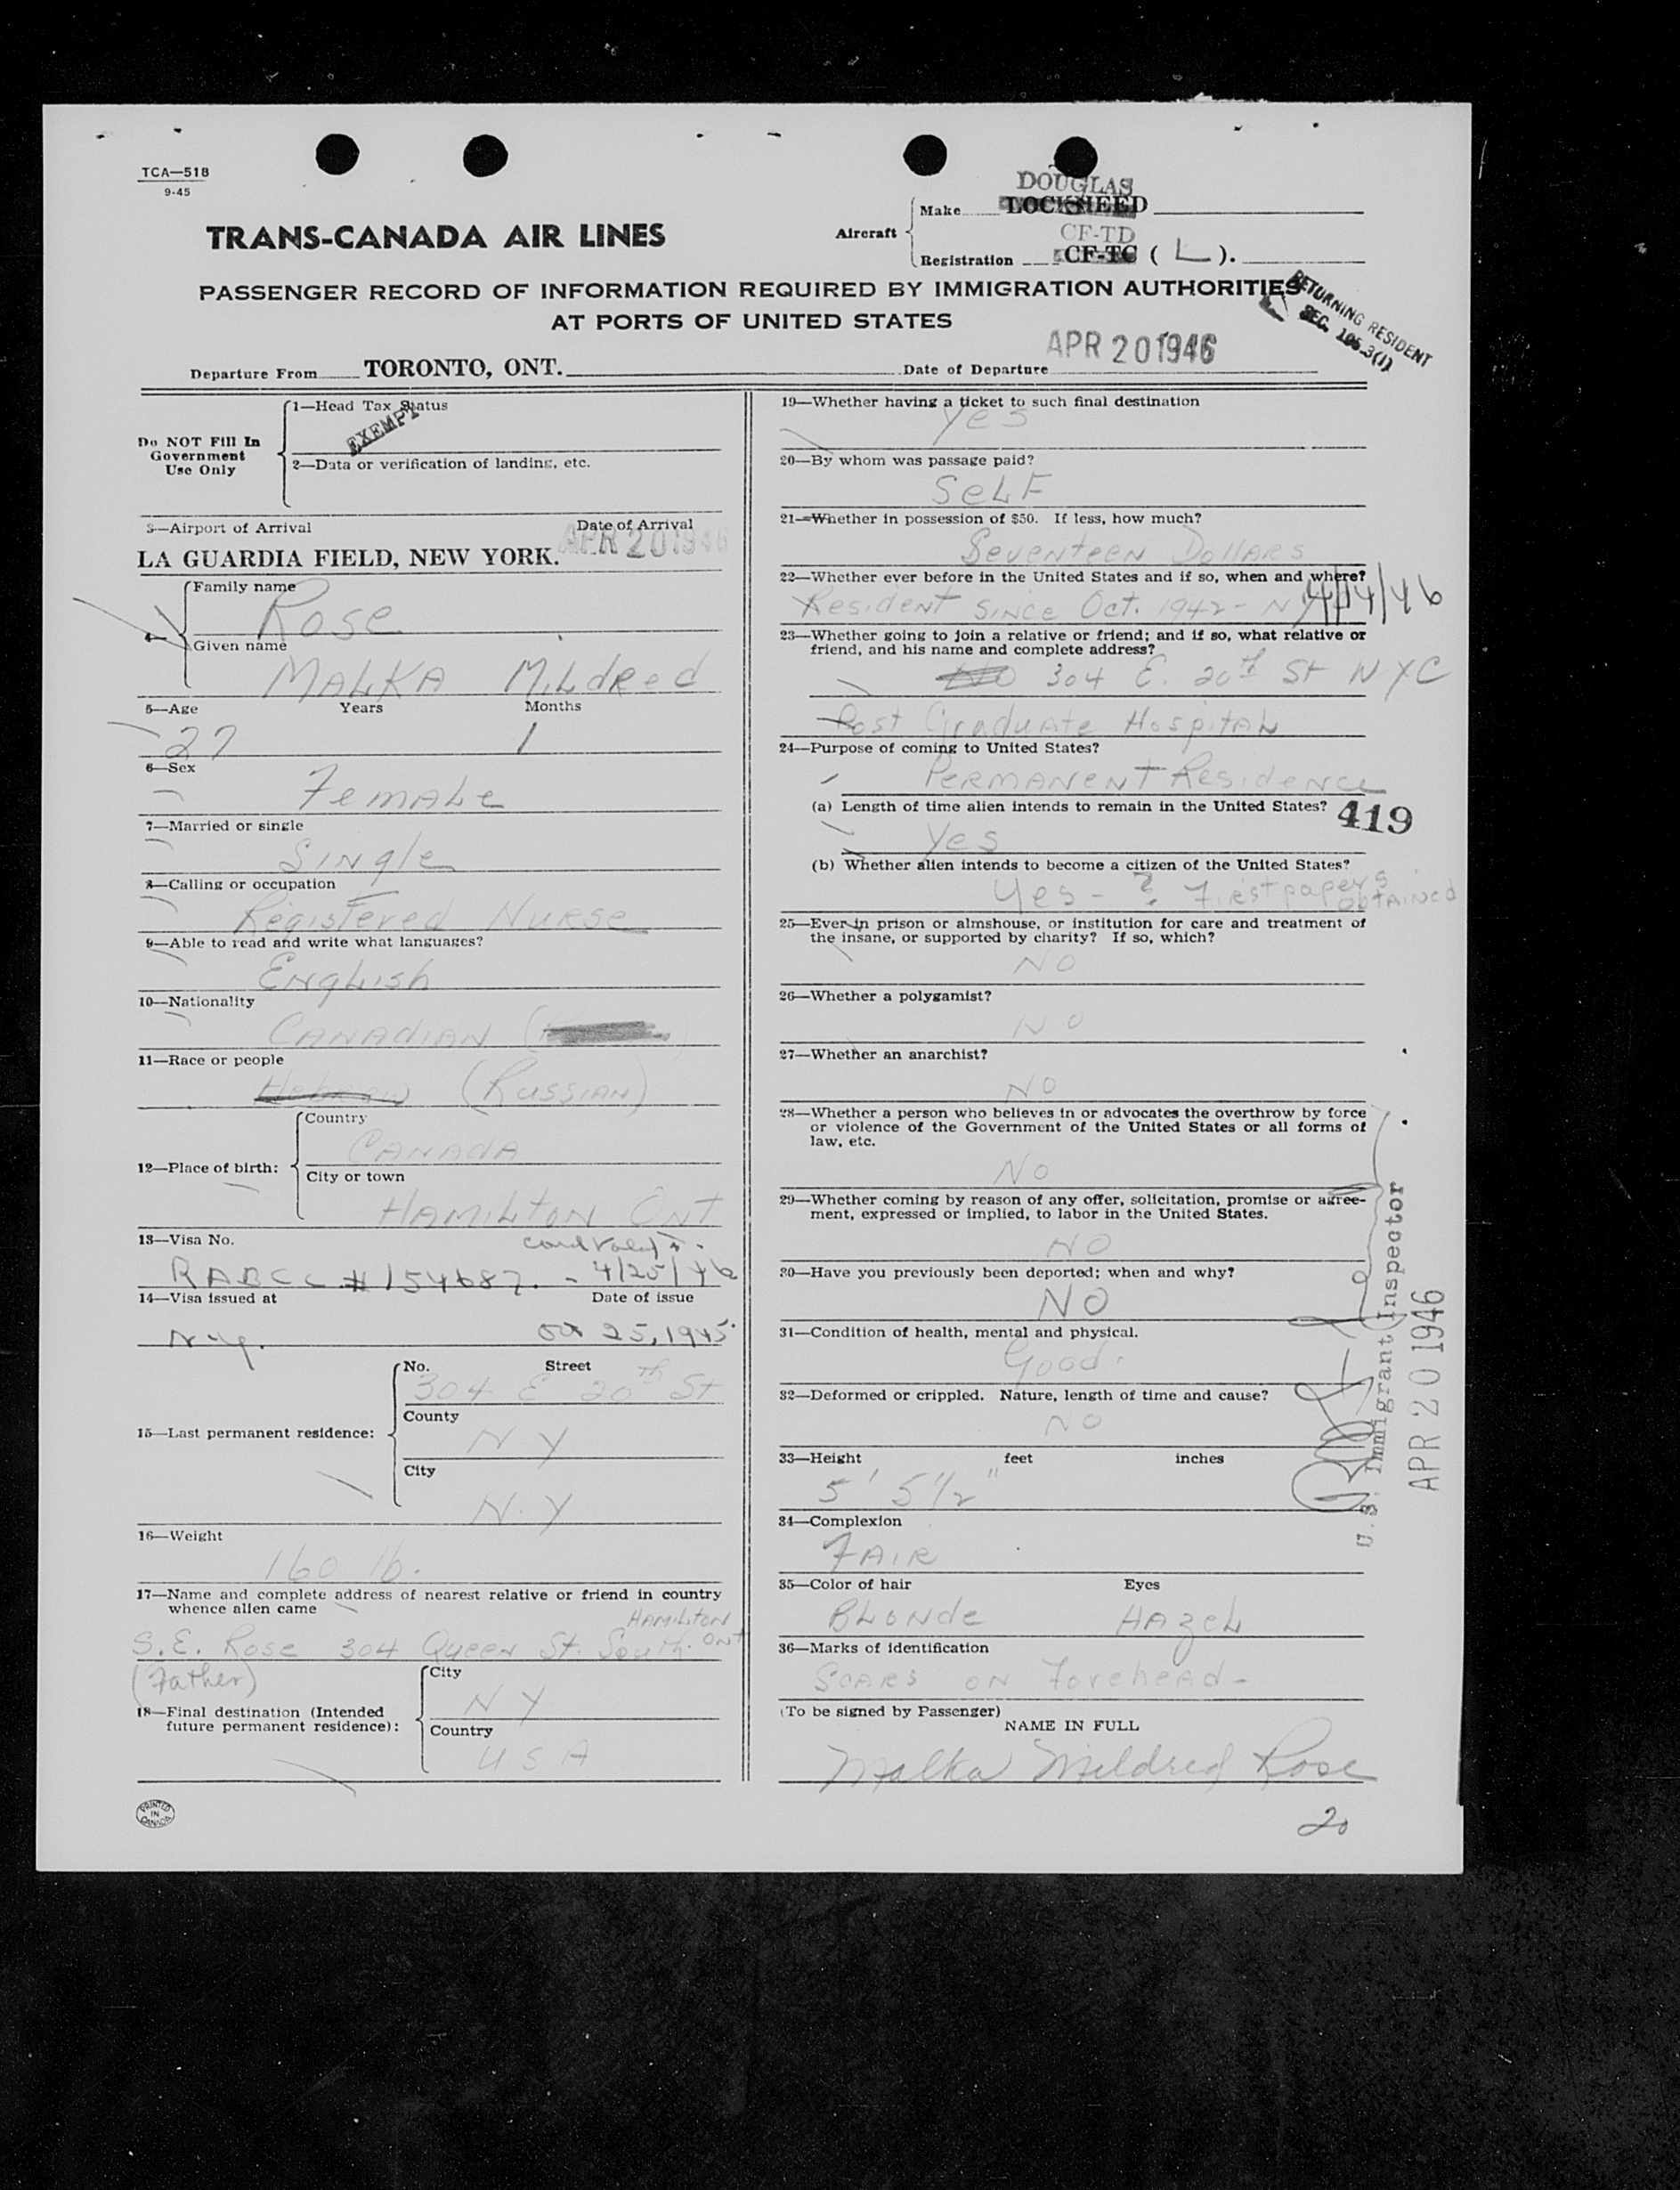 TCA—518
9-45
TRANS-CANADA AIR LINES
Aircraft
Make
DOUGLAS
LOCKHEED
CF-TD
Registration CF-TC ( L ).
PASSENGER RECORD OF INFORMATION REQUIRED BY IMMIGRATION AUTHORITIES
AT PORTS OF UNITED STATES
RETURNING RESIDENT
SEC. 195.3(1)
Departure From TORONTO, ONT.
Date of Departure APR 20 1946
Do NOT Fill In
Government
Use Only
1—Head Tax Status
EXEMPT
2—Data or verification of landing, etc.
3—Airport of Arrival Date of Arrival
LA GUARDIA FIELD, NEW YORK. APR 20 1946
4—
Family name
Rose
Given name
MALKA Mildred
5—Age Years Months
27 1
6—Sex
Female
7—Married or single
Single
8—Calling or occupation
Registered Nurse
9—Able to read and write what languages?
English
10—Nationality
CANADIAN
11—Race or people
Hebrew (Russian)
12—Place of birth:
Country
CANADA
City or town
HAMILTON ONT
13—Visa No.
RABCC #154687. - 4/25/46
14—Visa issued at Date of issue
N.Y. Oct 25, 1945.
15—Last permanent residence:
No. Street
304 E 20th St
County
N Y
City
N.Y
16—Weight
160 lb.
17—Name and complete address of nearest relative or friend in country
whence alien came
HAMILTON
S.E. Rose 304 Queen St. South. ONT
(Father)
18—Final destination (Intended
future permanent residence):
City
N Y
Country
USA
PRINTED
IN
CANADA
19—Whether having a ticket to such final destination
Yes
20—By whom was passage paid?
SELF
21—Whether in possession of $50. If less, how much?
Seventeen Dollars
22—Whether ever before in the United States and if so, when and where?
Resident since Oct. 1942 - NY 4/14/46
23—Whether going to join a relative or friend; and if so, what relative or
friend, and his name and complete address?
No 304 E. 20th St NYC
Post Graduate Hospital
24—Purpose of coming to United States?
PERMANENT Residence
(a) Length of time alien intends to remain in the United States? 419
Yes
(b) Whether alien intends to become a citizen of the United States?
Yes - ? First papers
obtained
25—Ever in prison or almshouse, or institution for care and treatment of
the insane, or supported by charity? If so, which?
NO
26—Whether a polygamist?
NO
27—Whether an anarchist?
NO
28—Whether a person who believes in or advocates the overthrow by force
or violence of the Government of the United States or all forms of
law, etc.
NO
29—Whether coming by reason of any offer, solicitation, promise or agree-
ment, expressed or implied, to labor in the United States.
NO
30—Have you previously been deported; when and why?
NO
31—Condition of health, mental and physical.
Good.
32—Deformed or crippled. Nature, length of time and cause?
NO
33—Height feet inches
5' 5½"
34—Complexion
FAIR
35—Color of hair Eyes
BLONDE HAZEL
36—Marks of identification
SCARS ON Forehead -
(To be signed by Passenger)
NAME IN FULL
Malka Mildred Rose
20
U.S. Immigrant Inspector
APR 20 1946